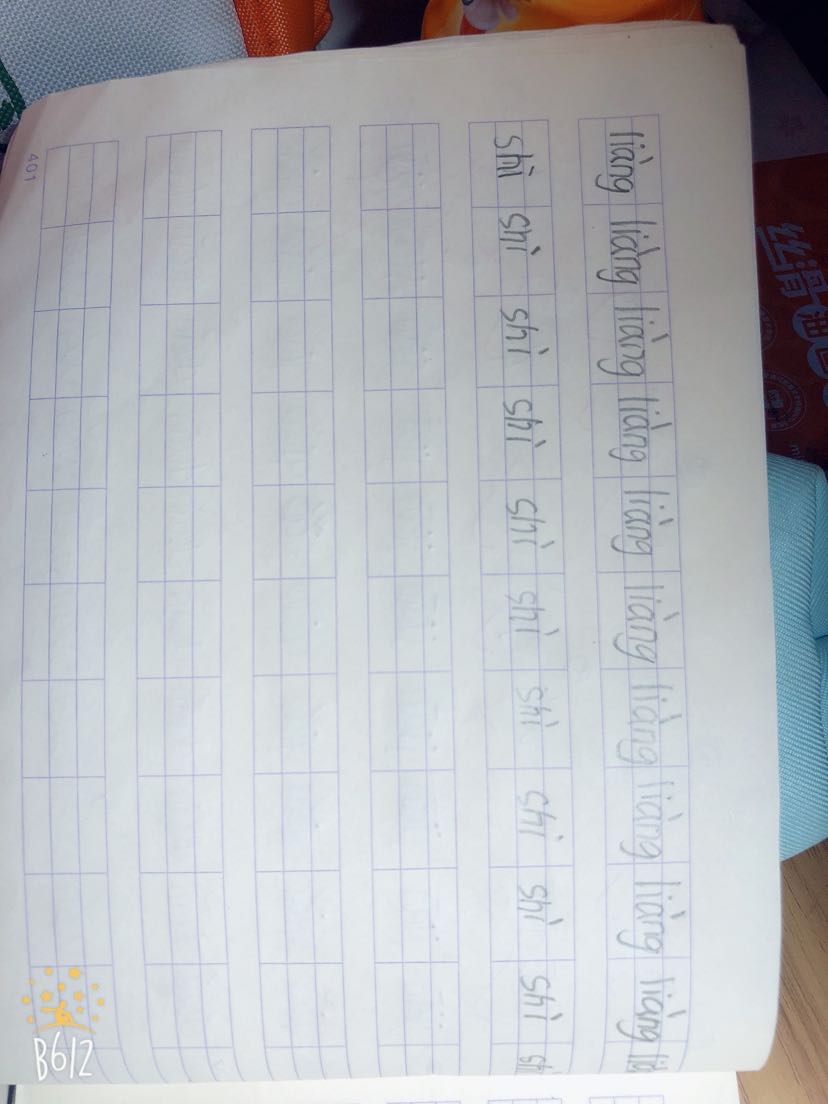 liàng liàng liàng liàng liàng liàng liàng liàng liàng liàng
shì shì shì shì shì shì shì shì shì shì
401
丝滑油
B612